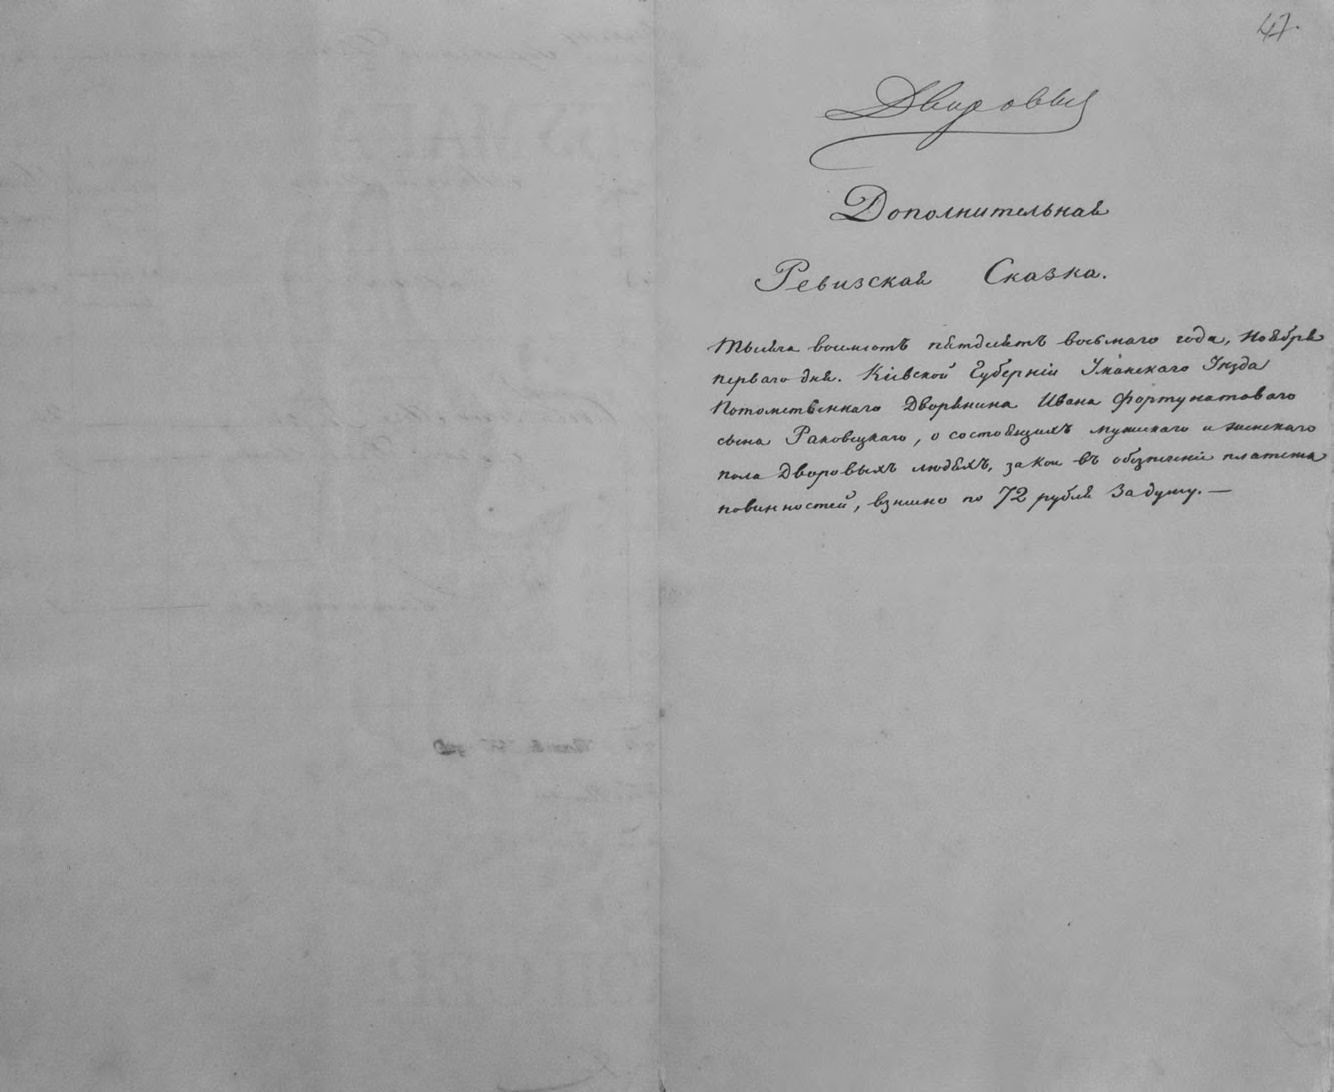 47.
Дворовыя
Дополнительная
Ревизская Сказка.
Тысяча восемсотъ пятдесятъ восьмаго года, Ноября
перваго дня. Кіевской Губерніи Уманскаго Уѣзда
Потомственнаго Дворянина Ивана Фортунатоваго
сына Раковецкаго, о состоящихъ мужскаго и женскаго
пола Дворовыхъ людяхъ, за кои въ обезпеченіе платежа
повинностей, взнесено по 72 рубля за душу. —